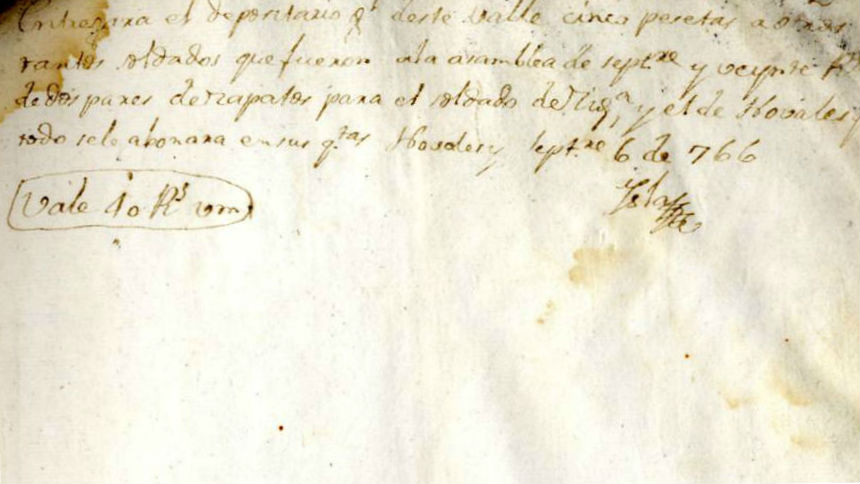 Entregara el depositario Gl deste Valle cinco pesetas a otros
tantos soldados que fueron a la asamblea de septre y veynte Rs
de dos pares de zapatos para el soldado de y el de Novales y
todo sele abonara en sus qtas Novales y septre 6 de 766
Vale 40 Rs vn
Ysla